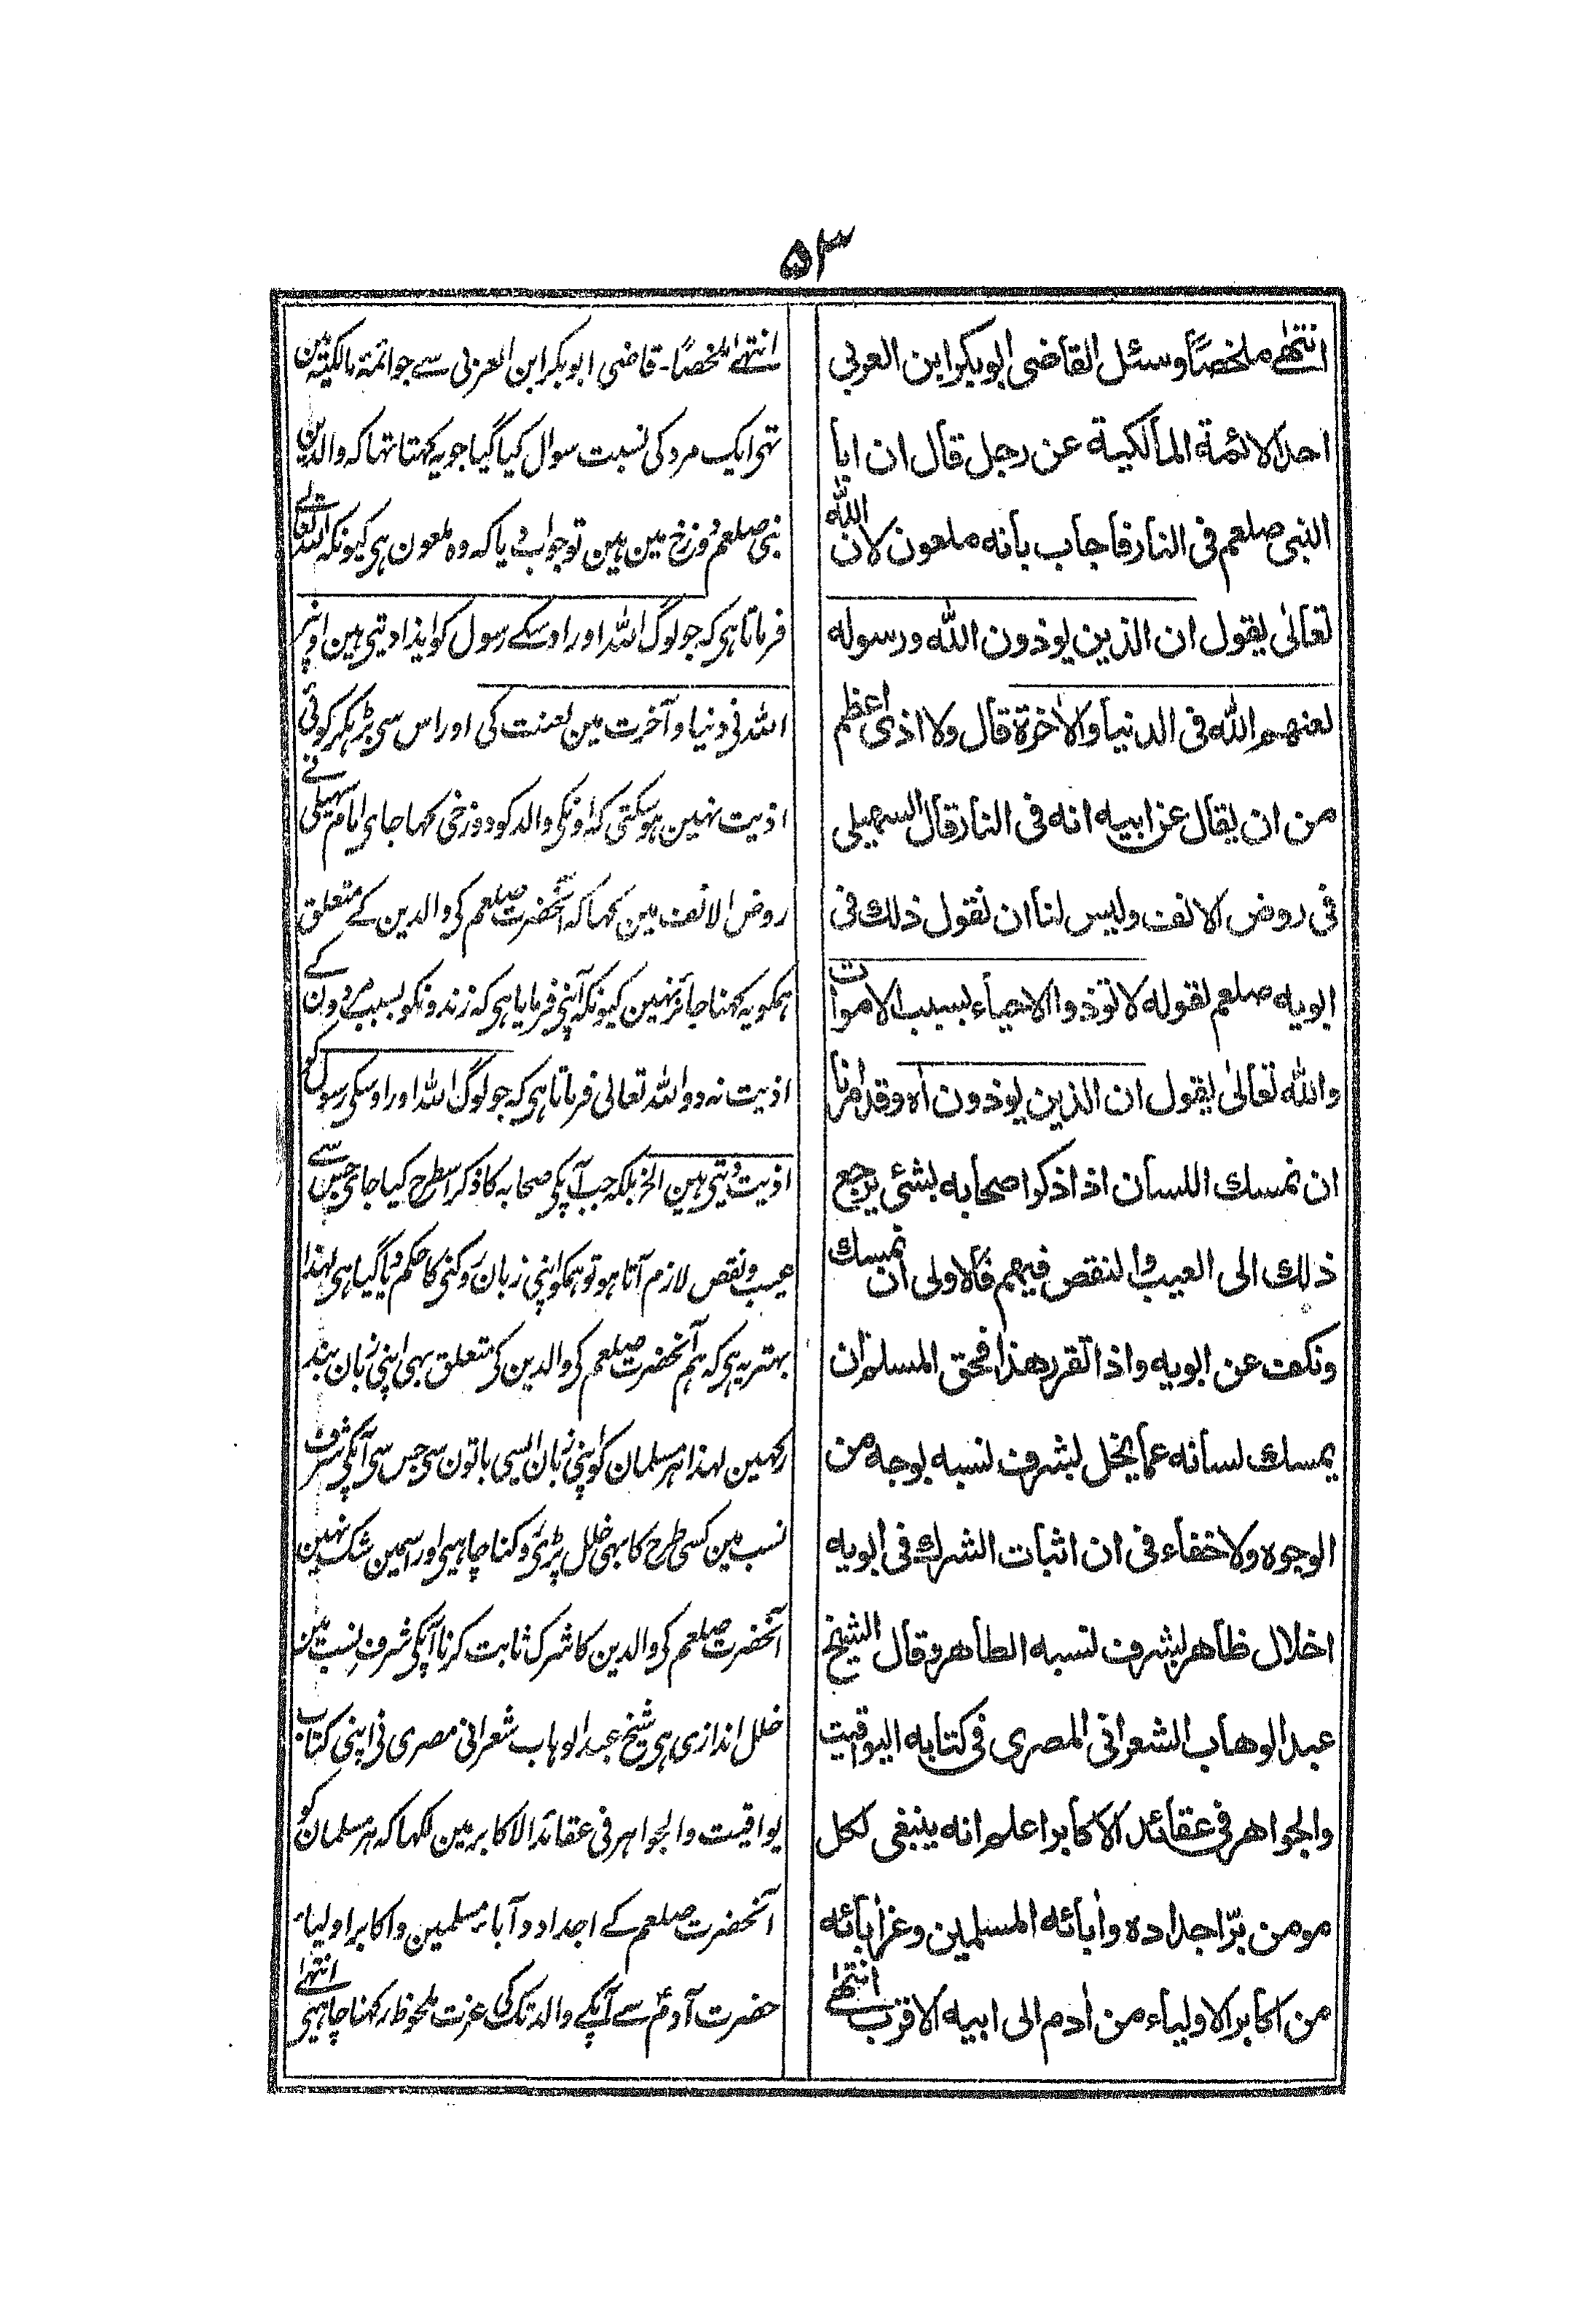 ۵۳
انتهٰے ملخصًا وسئل القاضى ابو بكر ابن العربى
احد الائمة المالكية عن رجل قال ان ابا
النبى صلعم فى النار فاجاب بانه ملعون لان الله
تعالىٰ يقول ان الذين يوذون الله ورسوله
لعنهم الله فى الدنيا والاٰخرة قال ولا اذى اعظم
من ان يقال عن ابيه انه فى النار قال السهيلى
فى روض الانف وليس لنا ان نقول ذلك فى
ابويه صلعم لقوله لا توذوا الاحياء بسبب الاموات
والله تعالىٰ يقول ان الذين يوذون اه وقد امرنا
ان نمسك اللسان اذا ذكر اصحابه بشئى يرجع
ذلك الى العيب والنقص فيهم فالاولى ان نمسك
ونكف عن ابويه واذا تقرر هذا فحق المسلم ان
يمسك لسانه عما يخل بشرف نسبه بوجه من
الوجوه ولا خفاء فى ان اثبات الشرك فى ابويه
اخلال ظاهر لشرف نسبه الطاهر وقال الشيخ
عبد الوهاب الشعرانى المصرى فى كتابه اليواقيت
والجواهر فى عقائد الاكابر اعلم انه ينبغى لكل
مومن برّ اجداده واٰبائه المسلمين وغر اٰبائه
من اكابر الاولياء من اٰدم الى ابيه الاقرب انتهٰے
انتہٰے ملخصًا۔ قاضی ابو بکر ابن العربی سے جو ائمۃ مالکیہ مین
تھی ایک مرد کی نسبت سوال کیا گیا جو یہ کہتا تھا کہ والدین
نبی صلعم دوزخ مین ہین تو جواب دیا کہ وہ ملعون ہی کیونکہ اللہ تعالٰے
فرماتا ہی کہ جو لوگ اللہ اور اوسکے رسول کو ایذا دیتی ہین اونپر
اللہ نی دنیا و آخرت مین لعنت کی اور اس سی بڑہکر کوئی
اذیت نہین ہوسکتی کہ اونکی والد کو دوزخی کہا جاے امام سہیلی نے
روض الانف مین کہا کہ آنحضرت صلعم کی والدین کے متعلق
ہمکو یہ کہنا جائز نہین کیونکہ آپنی فرمایا ہی کہ زندونکو بسبب مردون کے
اذیت نہ دو اللہ تعالی فرماتا ہی کہ جو لوگ اللہ اور اوسکی رسول کو
اذیت دیتی ہین الخ بلکہ جب آپکی صحابہ کا ذکر اسطرح کیا جای جس سے
عیب و نقص لازم آتا ہو تو ہمکو اپنی زبان روکنی کا حکم دیا گیا ہی لہذا
بہتر یہ ہی کہ ہم آنحضرت صلعم کی والدین کی متعلق بھی اپنی زبان بند
رکہین لہذا ہر مسلمان کو اپنی زبان ایسی باتون سی جس سی آپکی شرف
نسب مین کسی طرح کا بھی خلل پڑی روکنا چاہیی اور اسمین شک نہین
آنحضرت صلعم کی والدین کا شرک ثابت کرنا آپکی شرف نسب مین
خلل اندازی ہی شیخ عبد الوہاب شعرانی مصری نی اپنی کتاب
یواقیت والجواہر فی عقائد الاکابر مین لکہا کہ ہر مسلمان کو
آنحضرت صلعم کے اجداد و آباء مسلمین و اکابر اولیاء
حضرت آدمؑ سے آپکے والد تک کی عزت ملحوظ رکہنا چاہیی انتہٰے